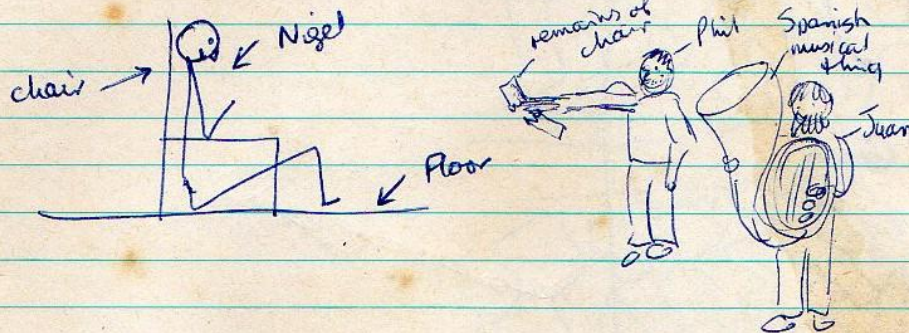 Nigel
chair
Floor
remains of
chair
Phil
Spanish
musical
thing
Juan